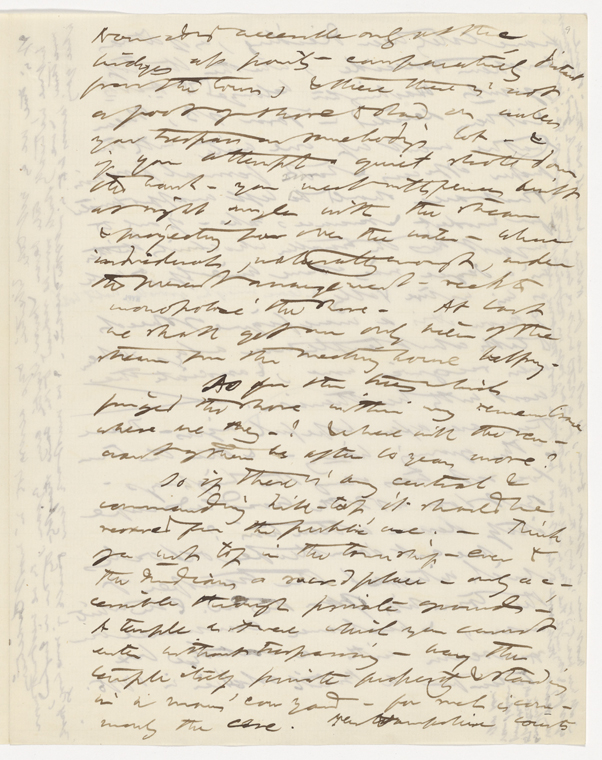 accessible only at the
bridges at points comparatively distant
from the town, & there there is not
a foot of shore to stand on unless
you trespass on somebody's lot — &
if you attempt a quiet stroll down
the bank — you meet with fences built
at right angles with the stream
& projecting far over the water — where
individuals, naturally enough, under
the present arrangement — seek to
monopolize the shore — At last
we shall get our only view of the
stream from the meeting house belfry. —
As for the trees which
fringed the shore within my remembrance
where are they — ? & where will the rem-
nant of them be after 10 years more?
So if there is any central &
commanding hill-top it should be
reserved for the public use. — Think
of a mt top in the township — even to
the Indians a sacred place — only ac-
cessible through private grounds —
A temple as it were which you cannot
enter without trespassing — nay the
temple itself private property & standing
in a man's cow yard — for such is com-
monly the case. New Hampshire courts